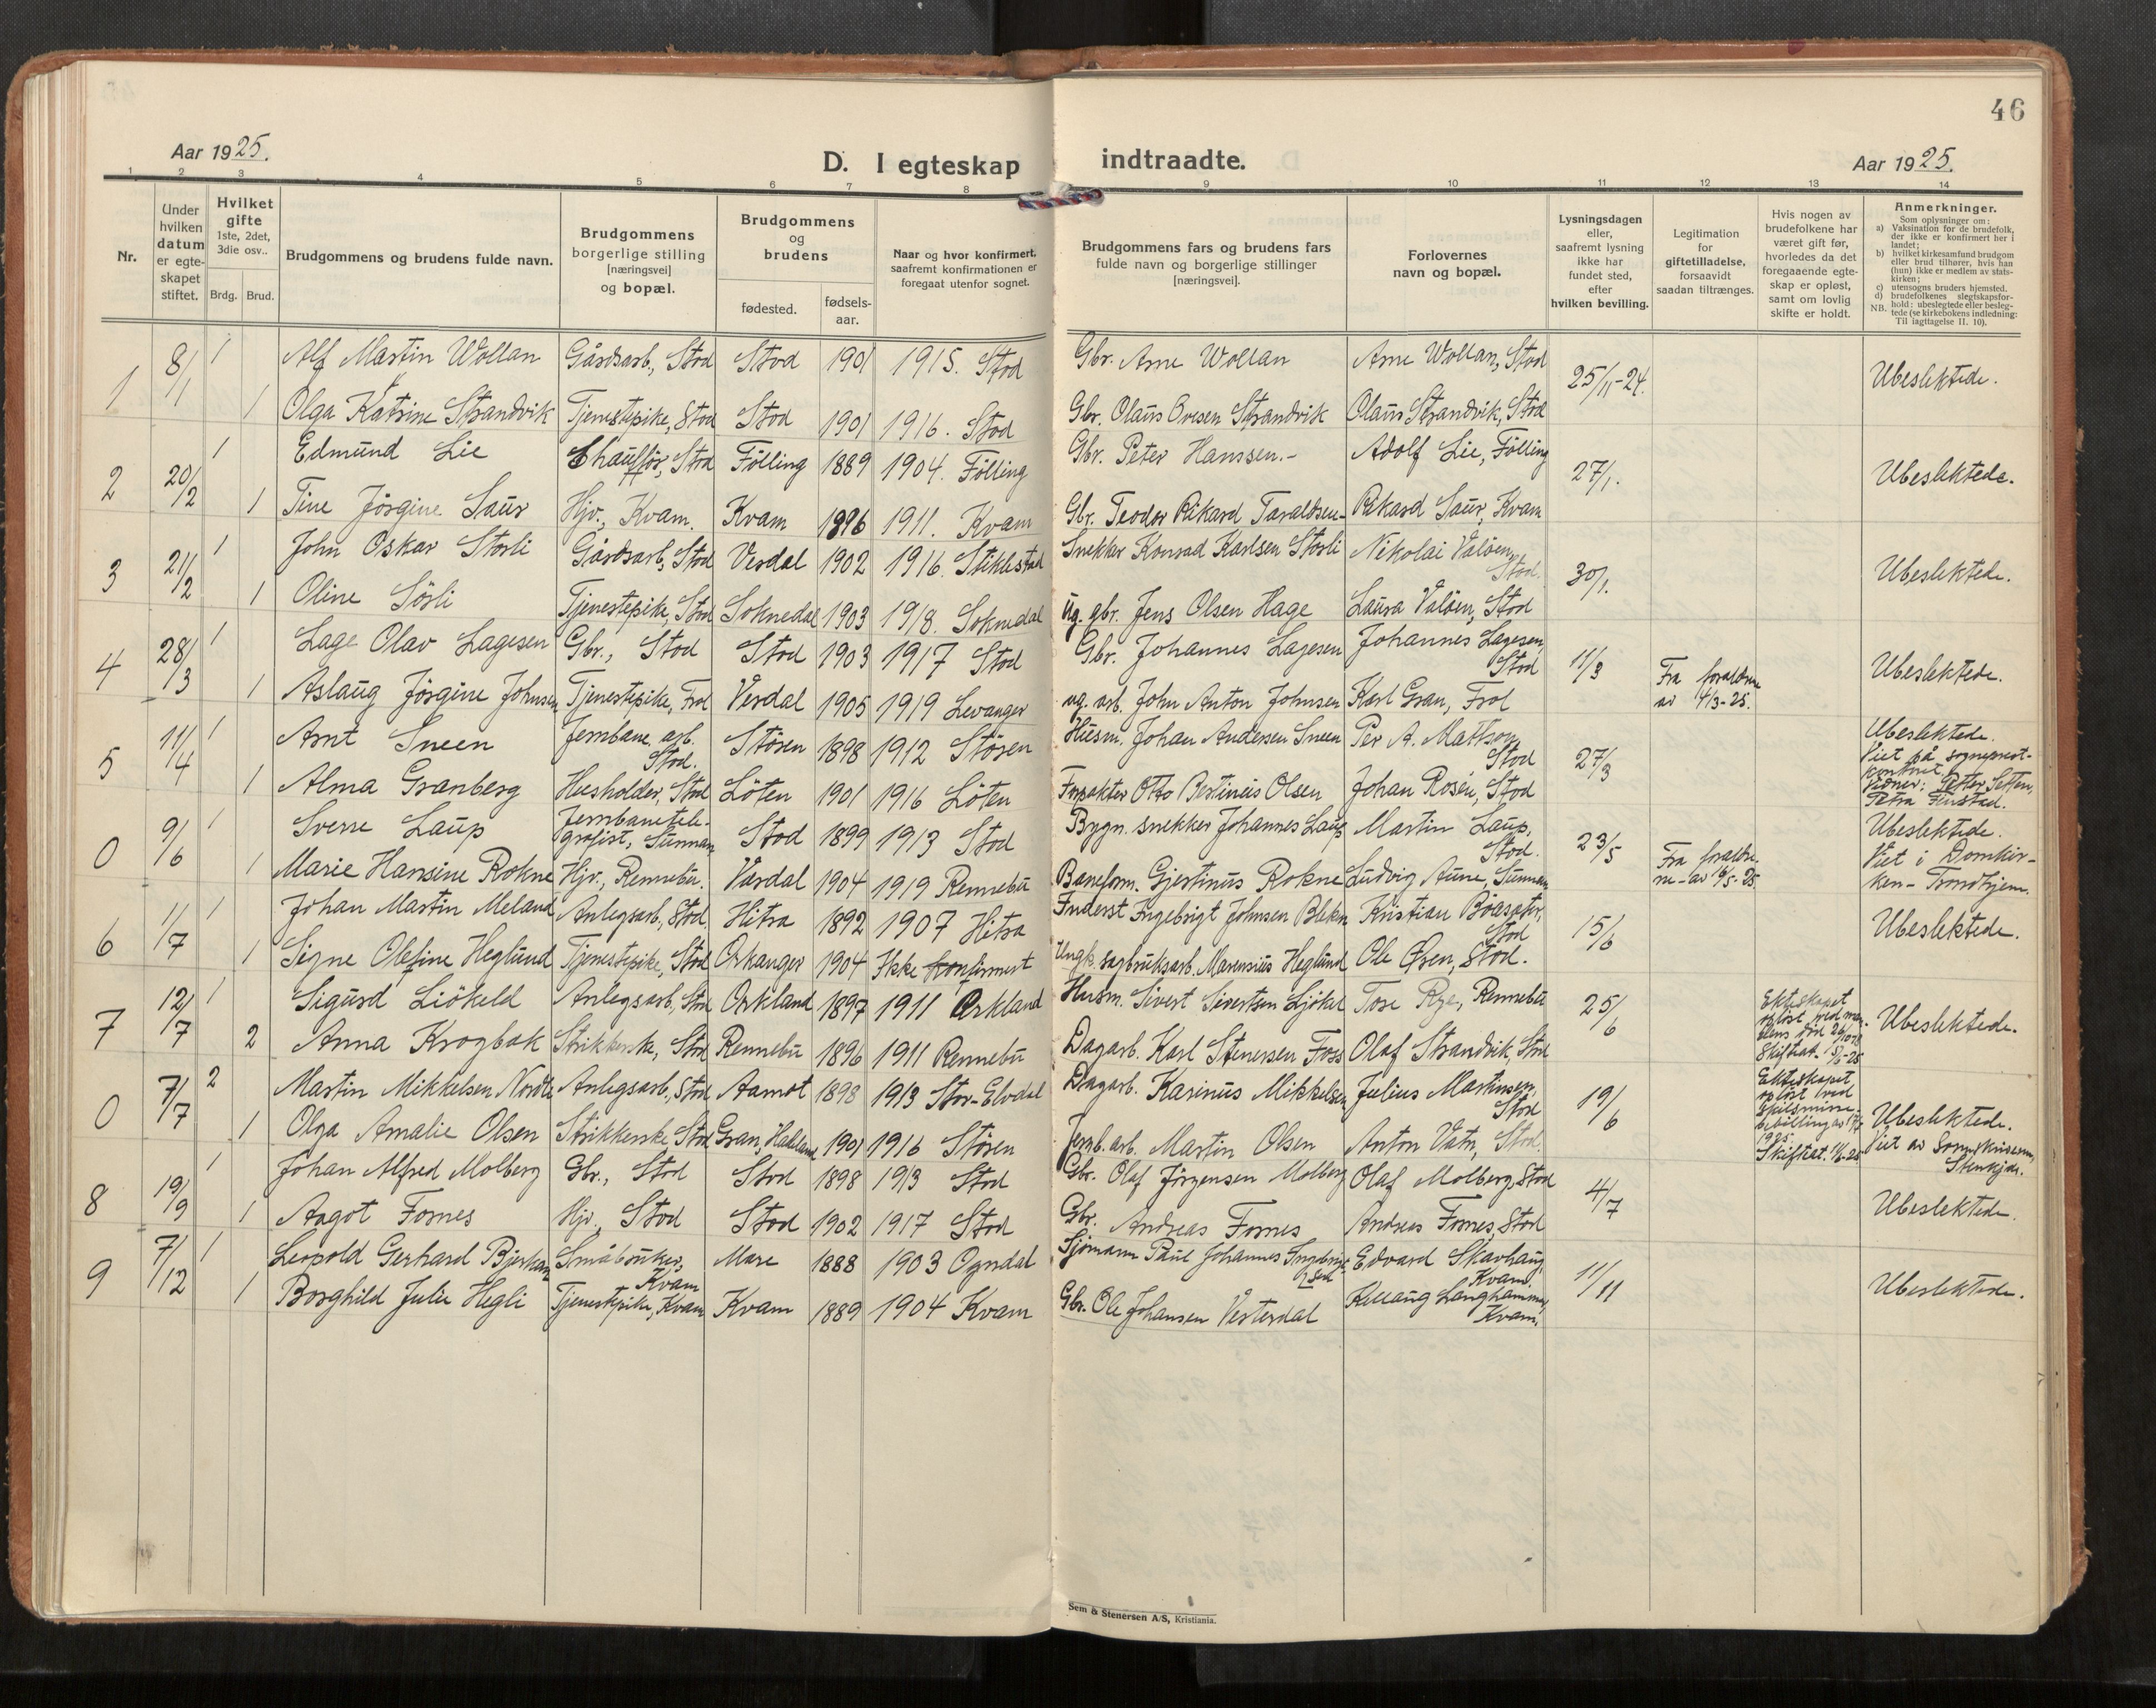 46
Aar 1925.
D. I egteskap indtraadte.
Aar 1925.
1 2 3 4 5 6 7 8 9 10 11 12 13 14
Nr.
Under hvilken datum er egte-skapet stiftet.
Hvilket gifte 1ste, 2det, 3die osv..
Brdg. Brud.
Brudgommens og brudens fulde navn.
Brudgommens borgerlige stilling [næringsvei] og bopæl.
Brudgommens og brudens
fødested. fødsels-aar.
Naar og hvor konfirmert, saafremt konfirmationen er foregaat utenfor sognet.
Brudgommens fars og brudens fars fulde navn og borgerlige stillinger [næringsvei].
Forlovernes navn og bopæl.
Lysningsdagen eller, saafremt lysning ikke har fundet sted, efter hvilken bevilling.
Legitimation for giftetilladelse, forsaavidt saadan tiltrænges.
Hvis nogen av brudefolkene har været gift før, hvorledes da det foregaaende egte-skap er opløst, samt om lovlig skifte er holdt.
Anmerkninger.
Som oplysninger om:
a) Vaksination for de brudefolk, der ikke er konfirmert her i landet;
b) hvilket kirkesamfund brudgom eller brud tilhører, hvis han (hun) ikke er medlem av stats-kirken;
c) utensogns bruders hjemsted.
d) brudefolkenes slegtskapsfor-hold: ubeslegtede eller besleg-tede (se kirkebokens indledning:
NB. Til iagttagelse II. 10).
1 8/1 1 Alf Martin Wollan Gårdsarb., Stod Stod 1901 1915. Stod Gbr. Arne Wollan Arne Wollan, Stod 25/11-24. Ubeslektede.
1 Olga Katrine Strandvik Tjenestepike, Stod Stod 1901 1916. Stod Gbr. Olaus Ovesen Strandvik Olaus Strandvik, Stod
2 20/2 1 Edmund Lie Chauffør, Stod Følling 1889 1904. Følling Gbr. Peter Hanssen.- Adolf Lie, Følling 27/1. Ubeslektede.
1 Tine Jørgine Saur Hjv., Kvam. Kvam 1896 1911. Kvam Gbr. Teodor Rikard Taraldsen- Rikard Saur, Kvam
3 21/2 1 John Oskar Storli Gårdsarb., Stod Verdal 1902 1916. Stiklestad Snekker Konrad Karlsen Storli Nikolai Valøen, Stod. 30/1. Ubeslektede.
1 Oline Sørli Tjenestepike, Stod Soknedal 1903 1918. Soknedal ug. gbr. Jens Olsen Hage Laura Valøen, Stod
4 28/3 1 Lage Olav Lagesen Gbr., Stod Stod 1903 1917 Stod Gbr. Johannes Lagesen Johannes Lagesen, Stod 11/3 Fra foreldrene av 4/3-25. Ubeslektede.
1 Aslaug Jørgine Johnsen Tjenestepike, Frol Verdal 1905 1919 Levanger ug. arb. John Anton Johnsen Karl Gran, Frol
5 11/4 1 Arnt Sneen Jernbane. arb. Stod. Støren 1898 1912 Støren Husm. Johan Andersen Sneen Per A. Matson Stod 27/3 Ubeslektede. Viet på sogneprest-kontoret.
1 Alma Granberg Husholder, Stod Løten 1901 1916 Løten Forpakter Otto Bertineus Olsen Johan Rosén, Stod Vidner: Petter Setten, Petra Finstad.
0 9/6 1 Sverre Laup Jernbanetele-grafist, Sunnan Stod 1899 1913 Stod Bygn. snekker Johannes Laup Martin Laup, Stod. 23/5 Fra foreldre-ne- av 6/5-25. Ubeslektede. Viet i Domkir-ken - Trondhjem.
1 Marie Hansine Rokne Hjv., Rennebu. Værdal 1904 1919 Rennebu Baneform. Gjertinus Rokne Ludvig Aune, Sunnan
6 1/7 1 Johan Martin Meland Anlegsarb., Stod. Hitra 1892 1907 Hitra Inderst Ingebrigt Johnsen Kristian Bøaseter, Stod 15/6 Ubeslektede.
1 Signe Olefine Heglund Tjenestepike, Stod Orkanger 1904 Ikke konfirmert Ungk. sagbruksarb. Marensius Heglund Ole Øsen, Stod.
7 12/7 1 Sigurd Liøkeld Anlegsarb., Stod Orkland 1897 1911 Orkland Husm. Sivert Sivertsen Ljøkel Tore Rye, Rennebu 25/6 Ekteskapet opløst ved man-dens død 26/10-18 Skifteat. 5/5-25 Ubeslektede.
2 Anna Krogbak Strikkerske, Stod Rennebu 1896 1911 Rennebu Dagarb. Karl Stenersen Foss Olaf Strandvik, Stod
0 7/7 2 Martin Mikkelsen Nordli Anlegsarb., Stod Aamot 1898 1913 Stor-Elvdal Dagarb. Karinus Mikkelsen Julius Martinsen, Stod 19/6 Ekteskapet opløst ved skilsmisse-bevilling av 17/1 1925. Skifteat. 4/6-25 Ubeslektede. Viet av Sorenskriveren, Stenkjær.
1 Olga Amalie Olsen Strikkerske Stod Gran, Hadeland 1901 1916 Støren Jernb. arb. Martin Olsen Anton Vatn, Stod.
8 19/9 1 Johan Alfred Molberg Gbr., Stod Stod 1898 1913 Stod Gbr. Olaf Jørgensen Molberg Olaf Molberg, Stod 4/7 Ubeslektede.
1 Aagot Fornes Hjv., Stod Stod 1902 1917 Stod Gbr. Andreas Fornes Andreas Fornes, Stod
9 7/12 1 Leopold Gerhard Bjerkan Småbruker, Kvam Mære 1888 1903 Ogndal Sjømann Paul Johannes Edvard Skavhaug, Kvam. 11/11 Ubeslektede.
1 Borghild Julie Hegli Tjenestepike, Kvam Kvam 1889 1904 Kvam Gbr. Ole Johansen Vesterdal Langhammer, Kvam.
Sem & Stenersen A/S, Kristiania.